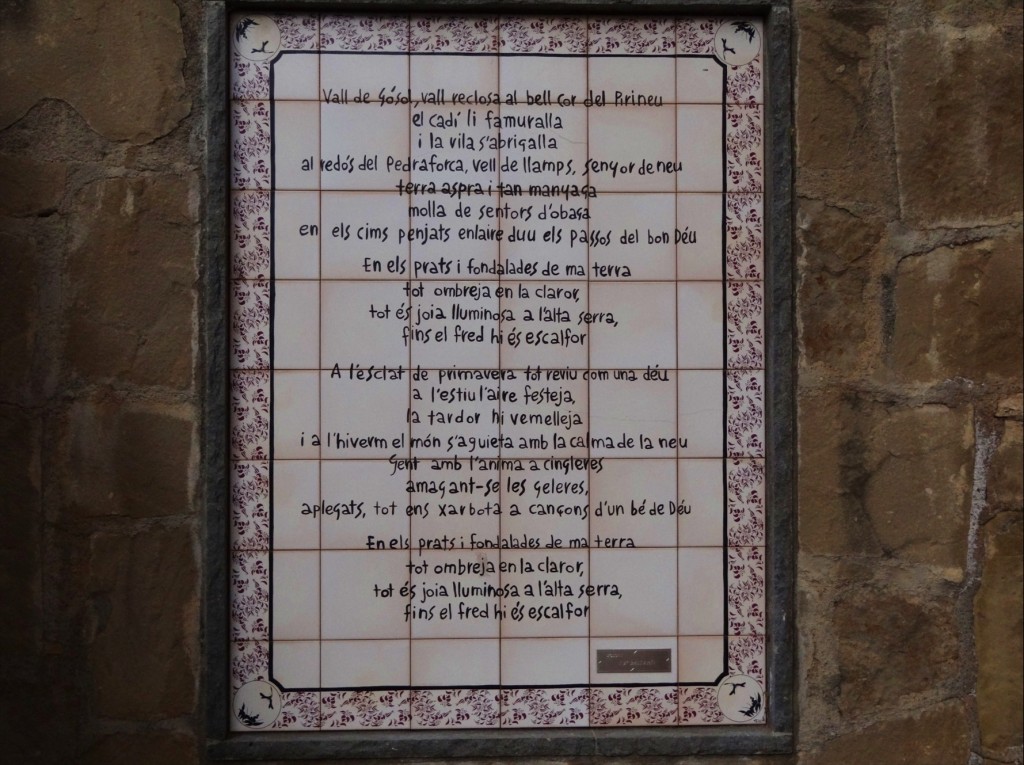 Vall de Gósol, vall reclosa al bell cor del Pirineu
el cadí li famuralla
i la vila s'abrigalla
al redós del Pedraforca, vell de llamps, senyor de neu
terra aspra i tan manyaga
molla de sentors d'obaga
en els cims penjats enlaire duu els passos del bon Déu
En els prats i fondalades de ma terra
tot ombreja en la claror,
tot és joia lluminosa a l'alta serra,
fins el fred hi és escalfor
A l'esclat de primavera tot reviu com una déu
a l'estiu l'aire festeja,
la tardor hi vermelleja
i a l'hivern el món s'aguieta amb la calma de la neu
Gent amb l'ànima a cingleres
amagant-se les geleres,
aplegats, tot ens xarbota a cançons d'un bé de Déu
En els prats i fondalades de ma terra
tot ombreja en la claror,
tot és joia lluminosa a l'alta serra,
fins el fred hi és escalfor